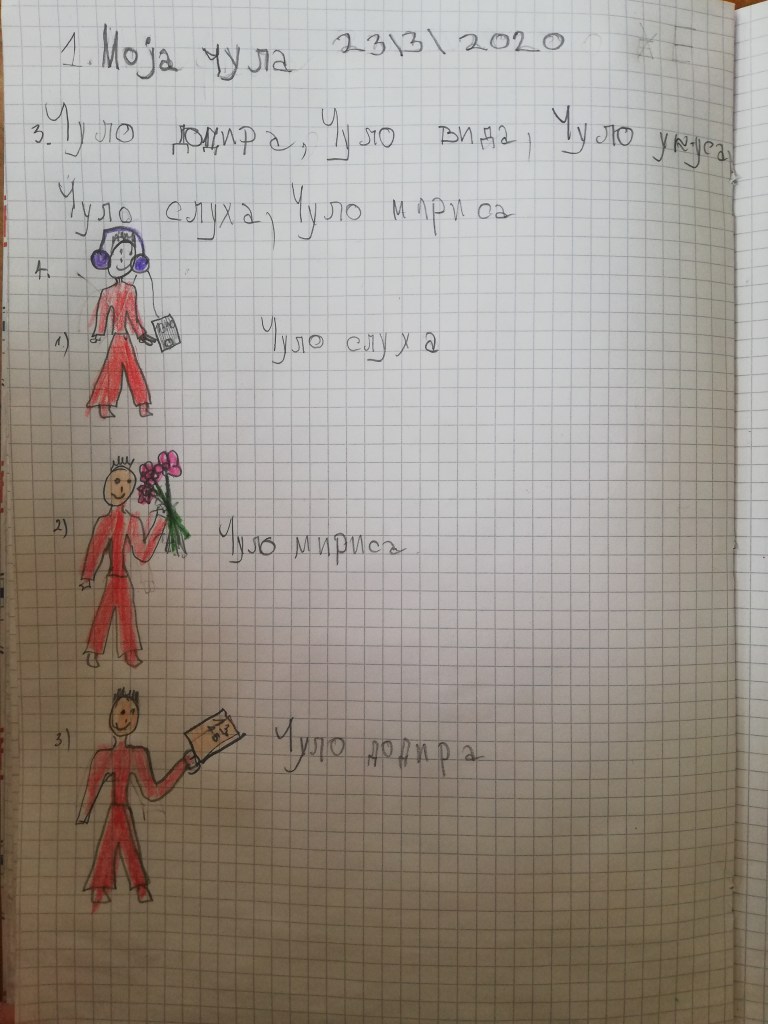 1. Моја чула 23\3\2020
3. Чуло додира, Чуло вида, Чуло укуса,
Чуло слуха, Чуло мириса
4.
1) Чуло слуха
2) Чуло мириса
3) Чуло додира